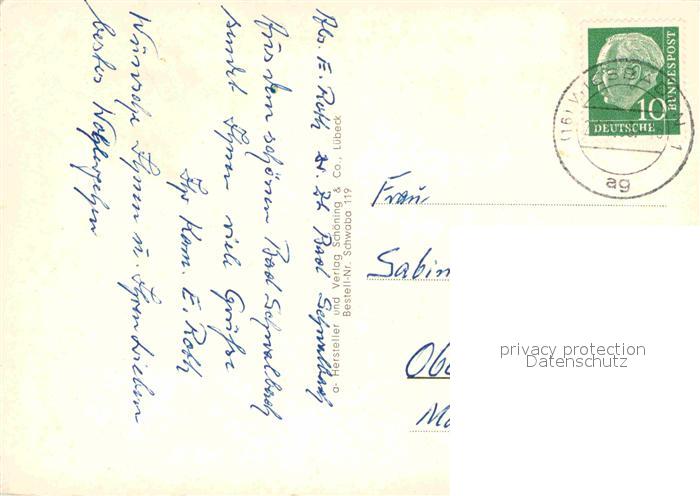 Abs. E. Roth Bad Schwalbach
Aus dem schönen Bad Schwalbach
sendet Ihnen viele Grüße
Ihr Kam. E. Roth
Wünsche Ihnen u. Ihren Lieben
bestes Wohlergehen
a- Hersteller und Verlag Schöning & Co., Lübeck
Bestell-Nr. Schwaba 119
10
DEUTSCHE
BUNDESPOST
(16) WIESBADEN 1
ag
Frau
Sabin
Obe
Ma
privacy protection
Datenschutz